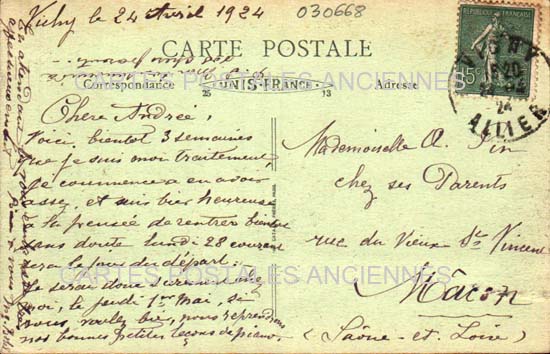 Vichy le 24 Avril 1924
030668
CARTE POSTALE
Correspondance
UNIS-FRANCE
25
13
Adresse
REPUBLIQUE FRANÇAISE
15c
VICHY
24
ALLIER
CARTES POSTALES ANCIENNES
Chère Andrée,
Voici bientôt 3 semaines
que je suis mon traitement,
je commence à en avoir
assez, et suis bien heureuse
à la pensée de rentrer bientôt
sans doute lundi 28 courant
sera le jour du départ.
Je serai donc d'
moi, le jeudi 1er Mai, si
vous voulez bien, nous reprendrons
nos bonnes petites leçons de piano.
Mademoiselle A. Pin
chez ses Parents
rue du Vieux St Vincent
Mâcon
(Saône-et-Loire)
CARTES POSTALES ANCIENNES